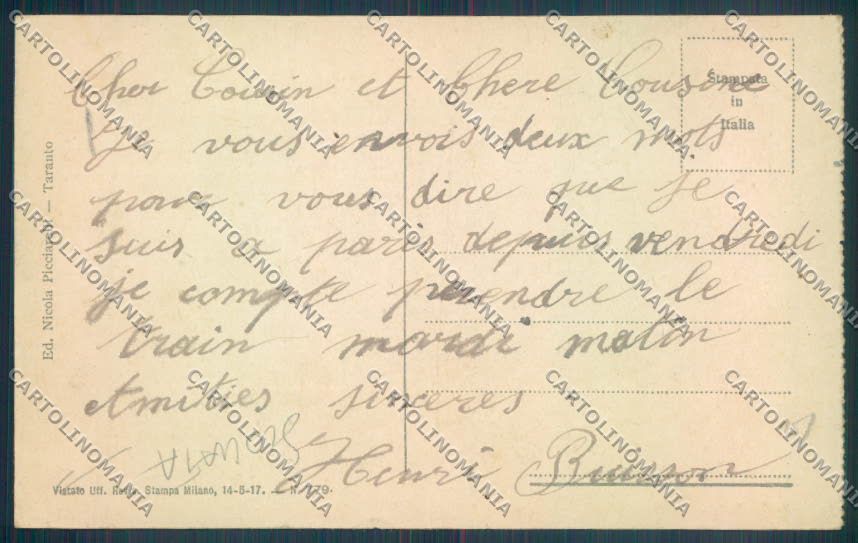 Cher Cousin et Chere Cousine
Je vous envois deux mots
pour vous dire que je
suis a paris depuis vendredi
je compte prendre le
train mardi matin
Amities sinceres
Henri Buisson
Stampata
in
Italia
Ed. Nicola — Taranto
Vistato Uff. Stampa Milano, 14-5-17. — N. 779.
CARTOLINOMANIA